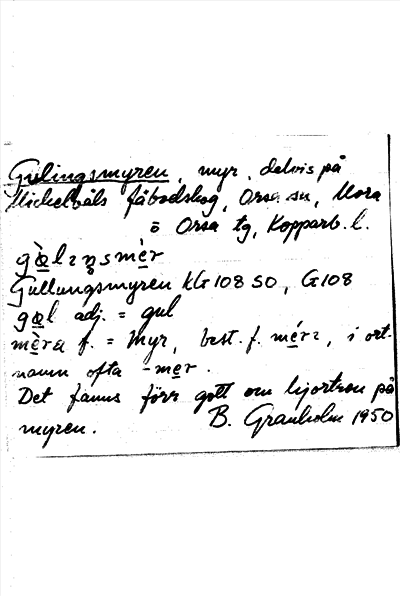 Gulingsmyren, myr, delvis på
Mickelvåls fäbodskog, Orsa sn, Mora
ö Orsa tg, Kopparb. l.
gə̀lɩŋsmér
Gullungsmyren kG 108 SO, G 108
gəl adj. = gul
mèra f. = myr, best. f. mérɩ, i ort-
namn ofta -mer.
Det fanns förr gott om hjortron på
myren. B. Granholm 1950